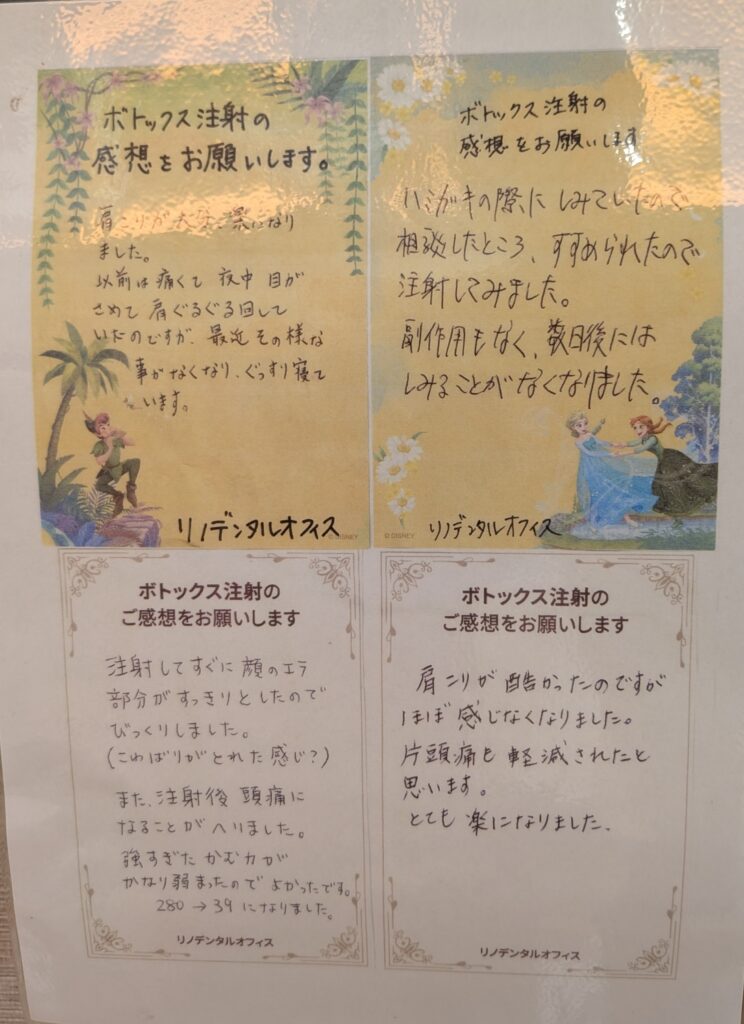 ボトックス注射の
感想をお願いします。
肩こりが大変楽になり
ました。
以前は痛くて 夜中 目が
さめて 肩ぐるぐる回して
いたのですが、最近その様な
事がなくなり、ぐっすり寝て
います。
リノデンタルオフィス
© DISNEY
ボトックス注射の
感想をお願いします
ハミガキの際に しみていたので
相談したところ、すすめられたので
注射してみました。
副作用もなく、数日後には
しみることがなくなりました。
リノデンタルオフィス
© DISNEY
ボトックス注射の
ご感想をお願いします
注射してすぐに 顔のエラ
部分がすっきりとしたので
びっくりしました。
(こわばりがとれた感じ?)
また、注射後 頭痛に
なることが へりました。
強すぎた かむ力が
かなり弱まったので よかったです。
280 → 39 になりました。
リノデンタルオフィス
ボトックス注射の
ご感想をお願いします
肩こりが 酷かったのですが
ほぼ 感じなくなりました。
片頭痛も 軽減されたと
思います。
とても 楽になりました。
リノデンタルオフィス